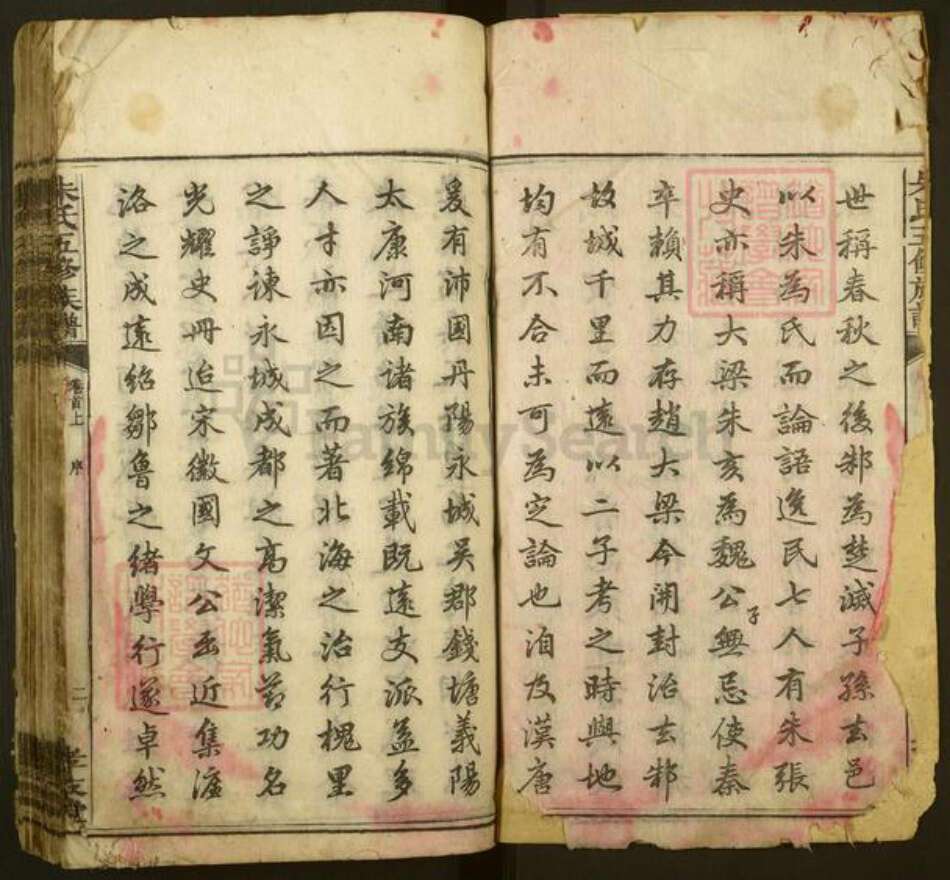 世稱春秋之後邾為楚滅子孫去邑
以朱為氏而論語逸民七人有朱張
史亦稱大梁朱亥為魏公子無忌使秦
卒賴其力存趙大梁今開封治去邾
故城千里而遠以二子考之時與地
均有不合未可為定論也洎及漢唐
爰有沛國丹陽永城吳郡錢塘義陽
太康河南諸族綿載既遠支派益多
人才亦因之而著北海之治行槐里
之諍諫永城成都之高潔氣節功名
光耀史冊迨宋徽國文公出近集濂
洛之成遠紹鄒魯之緒學行遂卓然
朱氏五修族譜
卷首上
序
二
FamilySearch